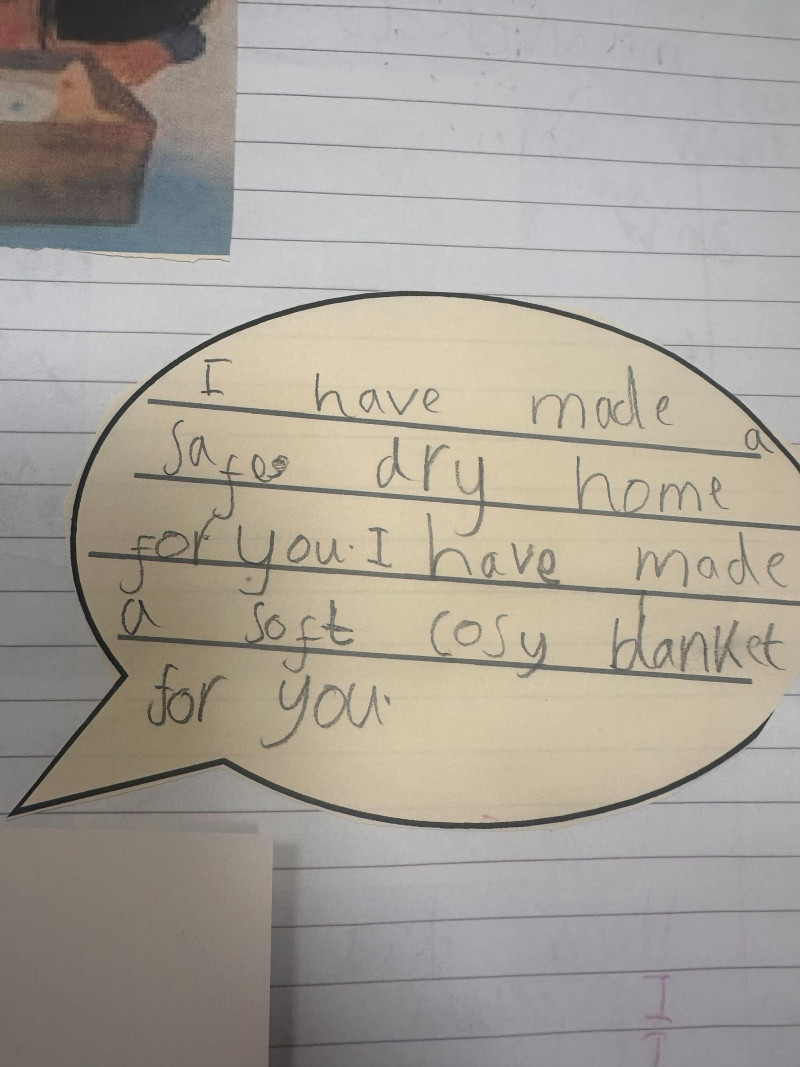 I have made a
safe dry home
for you. I have made
a soft cosy blanket
for you.
I